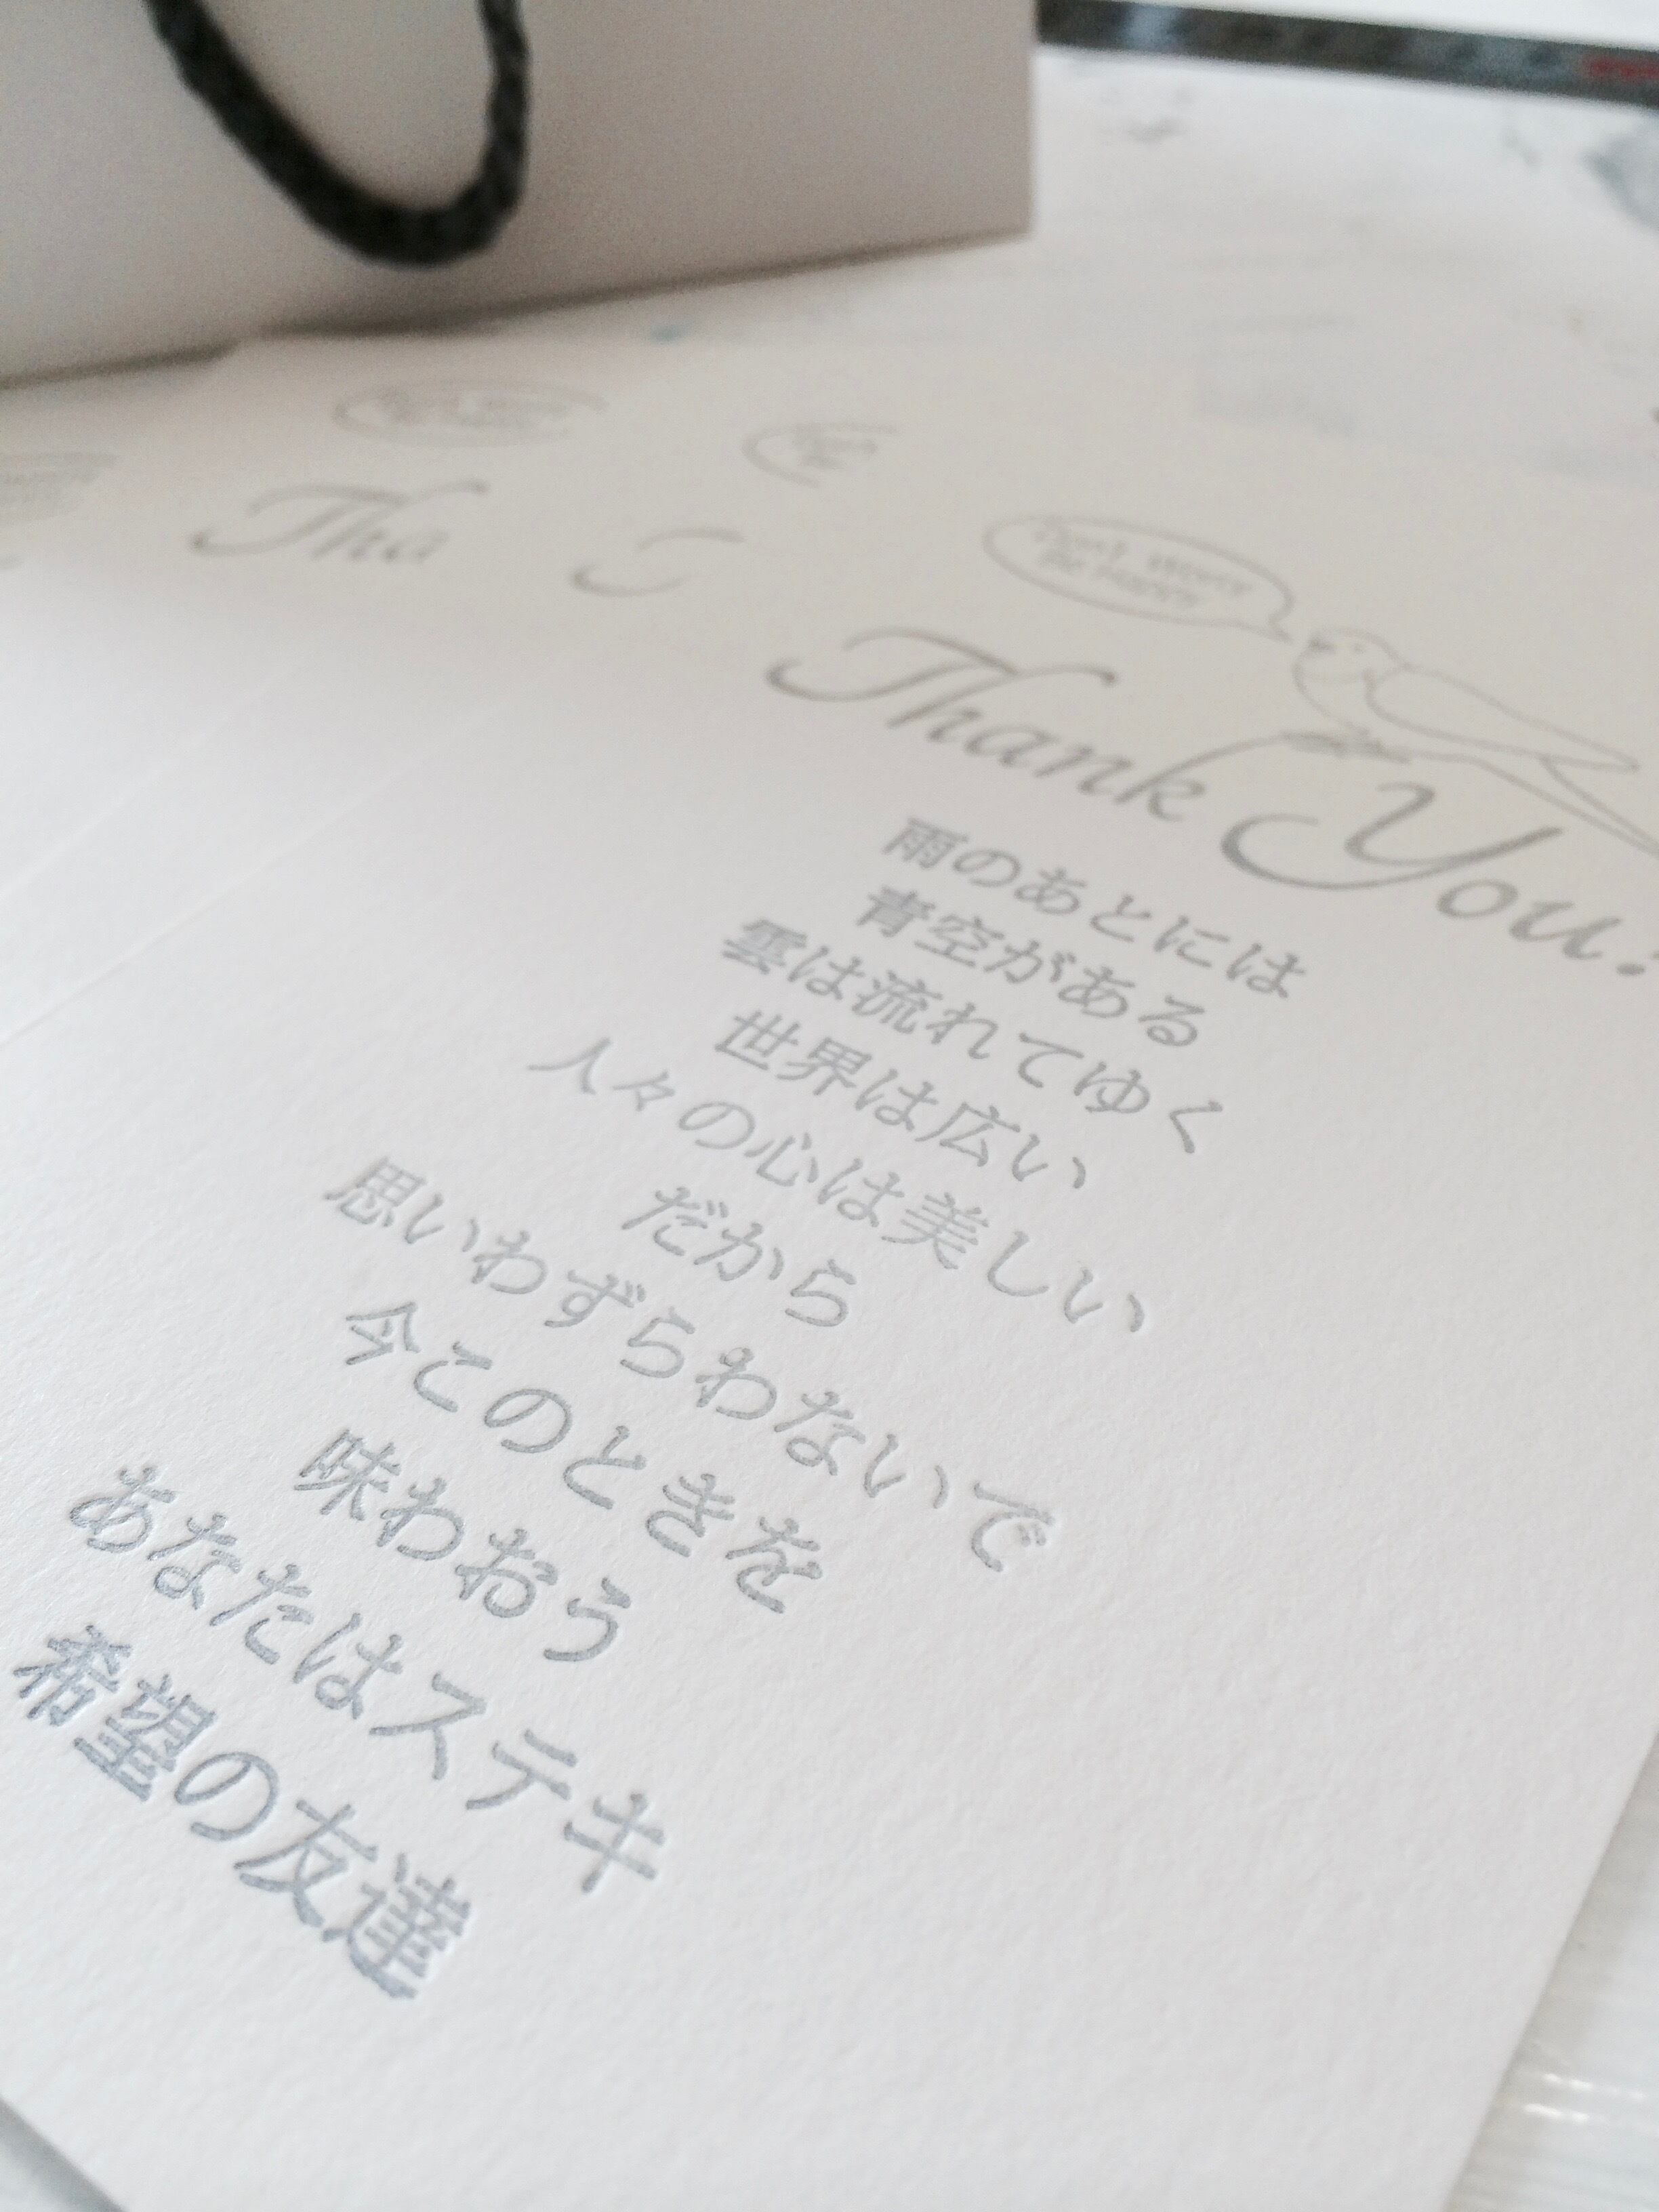 Don't Worry
Be Happy
Thank You!
雨のあとには
青空がある
雲は流れてゆく
世界は広い
人々の心は美しい
だから
思いわずらわないで
今このときを
味わおう
あなたはステキ
希望の友達
Tha